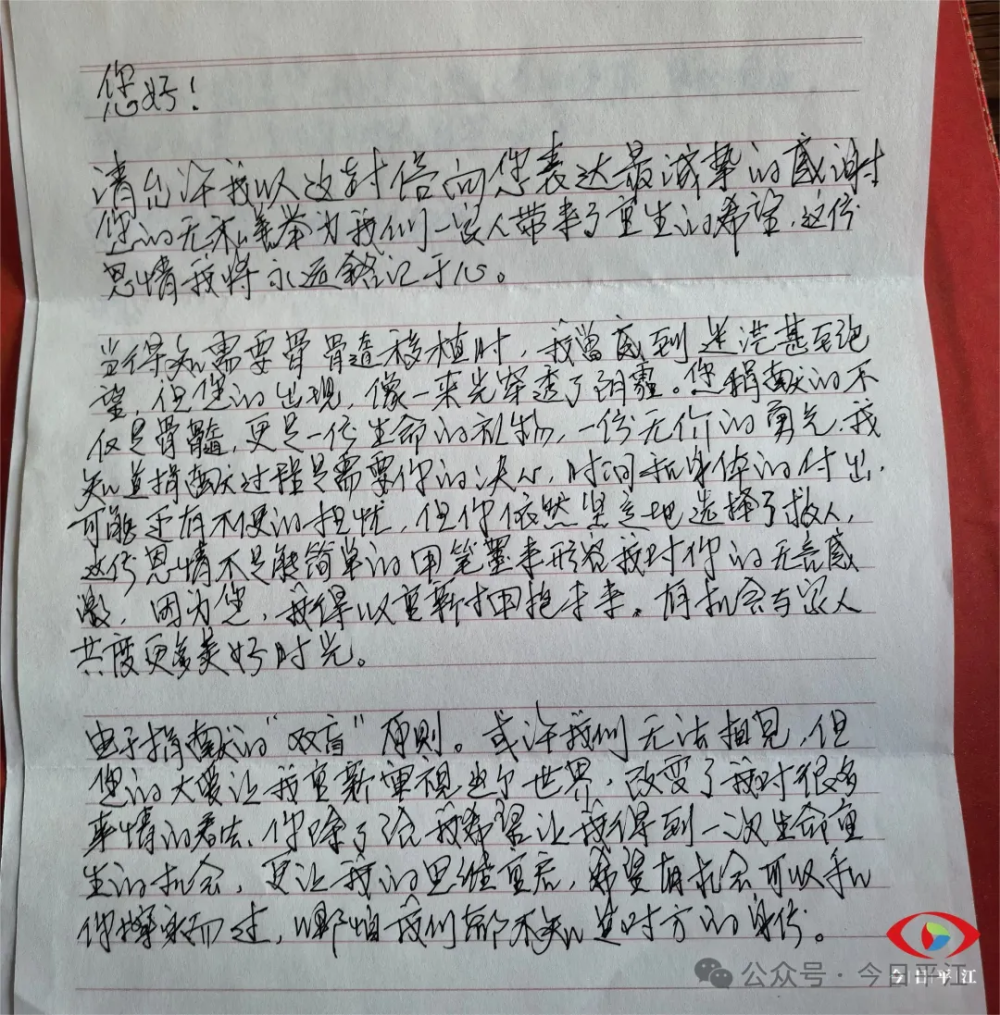 您好！
请允许我以这封信向您表达最诚挚的感谢对
您的无私义举为我们一家人带来了重生的希望，这份
恩情我将永远铭记于心。
当得知需要骨骨髓移植时，我曾感到迷茫甚至绝
望，但您的出现，像一束光穿透了阴霾。您捐献的不
仅是骨髓，更是一份生命的礼物，一份无价的勇气，我
知道捐献过程是需要你的决心，时间和身体的付出，
可能还有不便的担忧，但你依然坚定地选择了救人，
这份恩情不是能简单的用笔墨来形容我对你的无言感
激，因为您，我得以重新拥抱未来。有机会与家人
共度更多美好时光。
由于捐献的“双盲”原则。或许我们无法相见，但
您的大爱让我重新审视这个世界，改变了我对很多
事情的看法、你除了给我希望让我得到一次生命重
生的机会，更让我的思维重启，希望有机会可以和
你擦家而过，哪怕我们都不知道对方的身份。
公众号·今日平江
今日平江